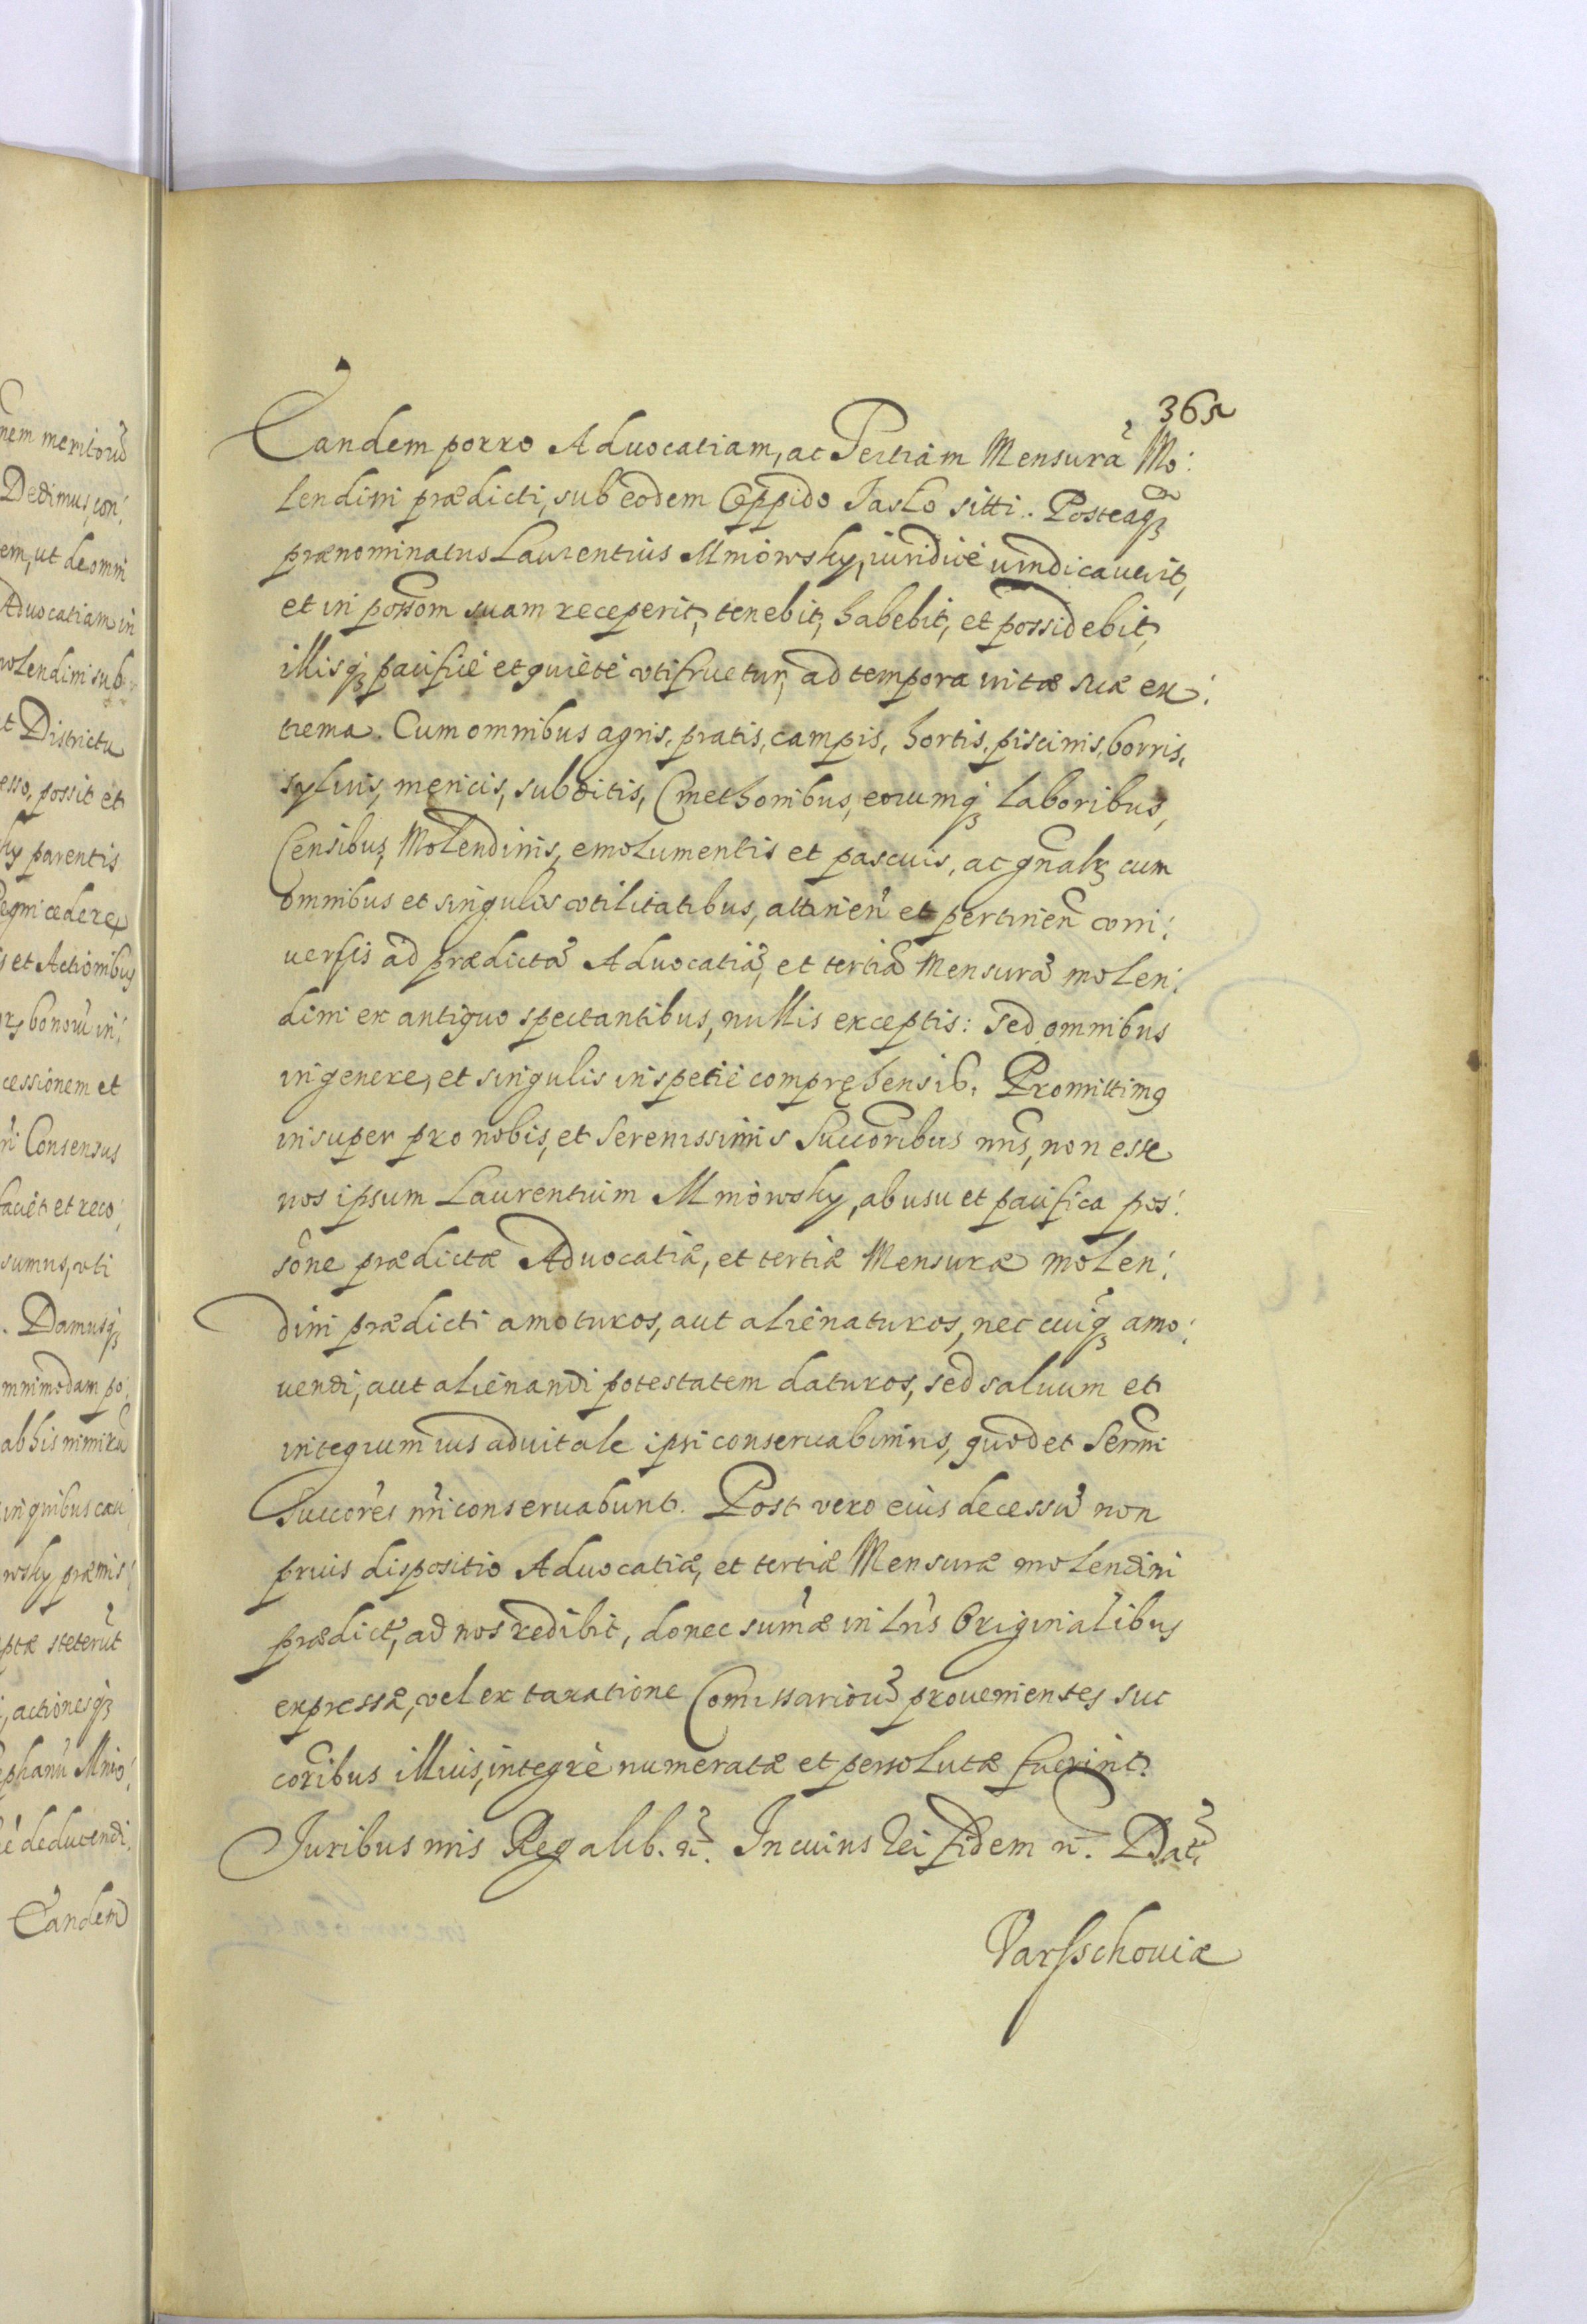 nem meritorũ
Dedimus, con:
em, ut de omni
Advocatiam in
molendini sub
et Districtu
esso, possit et
ky parentis
Regni cedere,
s et Actionibus
bonorũ in:
cessionem et
ri Consensus
faciet et reco:
sumus, vti
. Damusq₃
mnimodam po:
ab his nimirũ
in quibus
wsky præmis:
ptæ steterũt
i, actionesq₃
ephanũ Mnio:
é deducendi.
Eandem
365
Eandem porro Aduocatiam, ac Tertiam Mensurã Mo:
lendini prædicti, sub eodem Oppido Jaslo sitti. Posteaq₃
prænominatus Laurentius Mniowsky, iuridicè uindicauerit,
et in possom suam receperit, tenebit, habebit, et possidebit,
illisq₃ pacificè et quietè vtifruetur, ad tempora vitæ suæ ex:
trema. Cum omnibus agris, pratis, campis, hortis, piscinis, borris,
syluis, mericis, subditis, Cmethonibus, eorumq₃ laboribus,
Censibus, Molendinis, emolumentis et pascuis, ac gñalr cum
omnibus et singulis vtilitatibus, attineñ et pertineñ vni:
uersis ad prædictã Aduocatiã, et tertiã Mensurã molen:
dini ex antiquo spectantibus, nullis exceptis: sed omnibus
in genere, et singulis in spetiè comprehensib. Promittimꝯ
insuper pro nobis, et Serenissimis Succoribus nris, non esse
nos ipsum Laurentium Mniowsky, ab usu et pacifica pos:
sone prædictæ Aduocatiæ, et tertiæ Mensuræ molen:
dini prædicti amoturos, aut alienaturos, nec cuiq₃ amo:
uendi, aut alienandi potestatem daturos, sed saluum et
integrum ius aduitale ipsi conseruabimus, quod et Sermi
Succores nri conseruabunt. Post vero eius decessũ non
prius dispositio Aduocatiæ, et tertiæ Mensuræ molendini
prædict, ad nos redibit, donec sumæ in Lris Originalibus
expressæ, vel ex taxatione Comissariorũ prouenientes suc
coribus illius, integrè numeratæ et persolutæ fuerint.
Juribus nris Regalib. etc. In cuius rei fidem etc. Dat.
Varsschouiæ